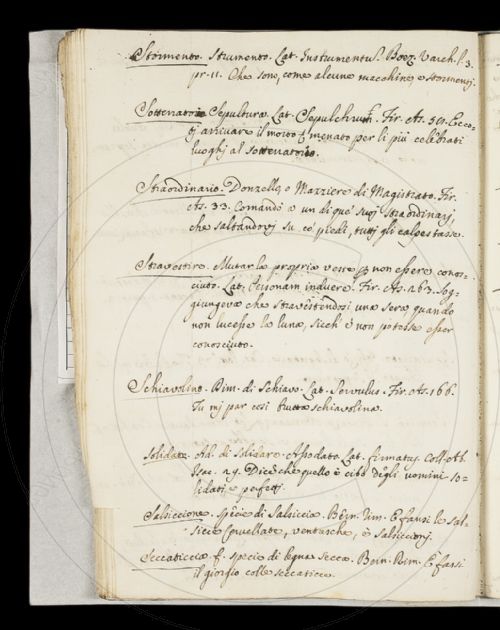 Stormento. Strumento. Lat. Instrumentus. Boez. Varch. l. 3.
pr. 11. Che sono, come alcune macchine, e stormenti.
Sotterratorio Sepultura. Lat. Sepulchrum. Fir. As. 50. Ecco
ti arrivare il morto menato per li più celebrati
luoghi al sotterratorio.
Straordinario. Donzello, o Mazziere di Magistrato. Fir.
As. 33. Comandò a un di que' suoj straordinarj,
che saltandovj su co' piedi, tuttj gli calpestasse.
Stravestire. Mutar la propria veste non essere conos-
ciuto. Lat. Personam induere. Fir. As. 263. Sog-
giungeva che stravestendosi una sera quando
non lucesse la luna, sicch' e' non potesse esser
conosciuto.
Schiavolino. Dim. di Schiavo. Lat. Servulus. Fir. As. 166.
Tu mj par così fatta schiavolina.
Solidato. Ad. di Solidare. Assodato. Lat. firmatus. Coll. Ab.
Isac. 29. Dice che quello è cibo degli uominj so-
lidati, e perfettj.
Salsiccione. Spezie di Salsiccia. Bern. Rim. E fansi le sal-
siccie Cervellate, ventresche, e salsiccionj.
Seccaticcia f. specie di legna secca. Bern. Rim. E fassi
il giorgio colle seccaticce.